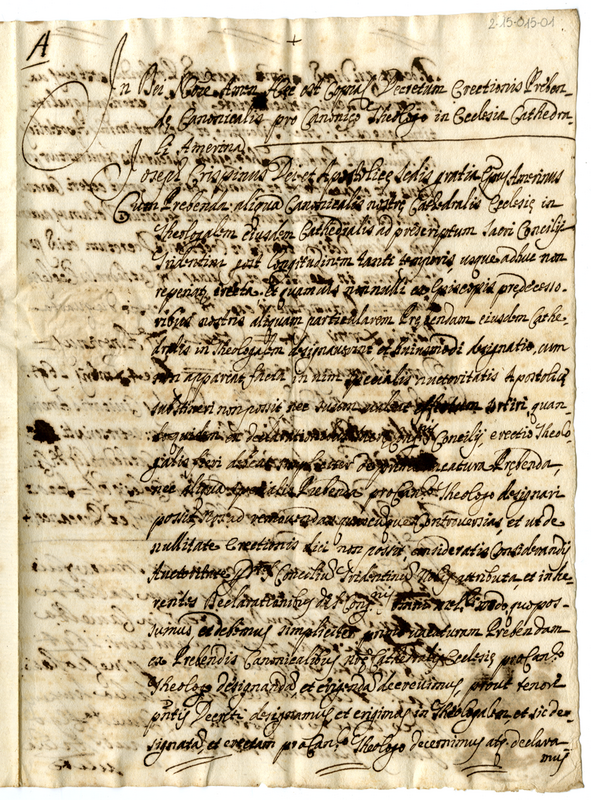 2-15-015-01
A
+
In Dei Noĩe Amen Hæc est Copia Decretum Erectionis Preben-
dę Canonicalis pro Canonico Theologo in Ecclesia Cathedra
li Amerina
Joseph Crispinus Dei et Apostolicę Sedis gratia Ep̃us Amerinus
Cum Prebenda aliqua Canonicalis nostrę Cathedralis Ecclesię in
Theologalem eiusdem Cathedralis ad prescriptum Sacri Concilij
Tridentini, longitudinem tanti temporis, usque adhuc non
reperiat erecta, et quamuis nonnulli ex Episcopis predecesso-
ribus nostris aliquam particularem Prebendam eiusdem Cathe-
dralis in Theologalem designauerint et huiusmodi designatio, cum
non appareat facta in vim specialis auctoritatis Apostolicę
substineri non possit nec suum sortiri, quan-
doquidem ex Concilij, erectio Theolo-
galis fieri debeat simpliciter de vacatura Prebenda,
nec aliqua specialis Prebenda pro Canco Theologo designari
possit ad remouendam quamcumque Controuersiam, et ut de
nullitate Erectionis dici non possit consideratis Considerandis
Auctoritate Concilium Tridentinum Nobis attributa, et inhe-
rentes Declarationibus modo quo pos-
sumus et debemus simpliciter primo vacaturam Prebendam
ex Prebendis Canonicalibus Cathedralis Ecclesię pro Canco
Theologo designandã et erigendã decreuimus, prout tenore
pñtis Decreti designamus, et erigimus in Theologalem, et sic de-
signatã et erectam pro Canco Theologo decernimus atq. declara
mus